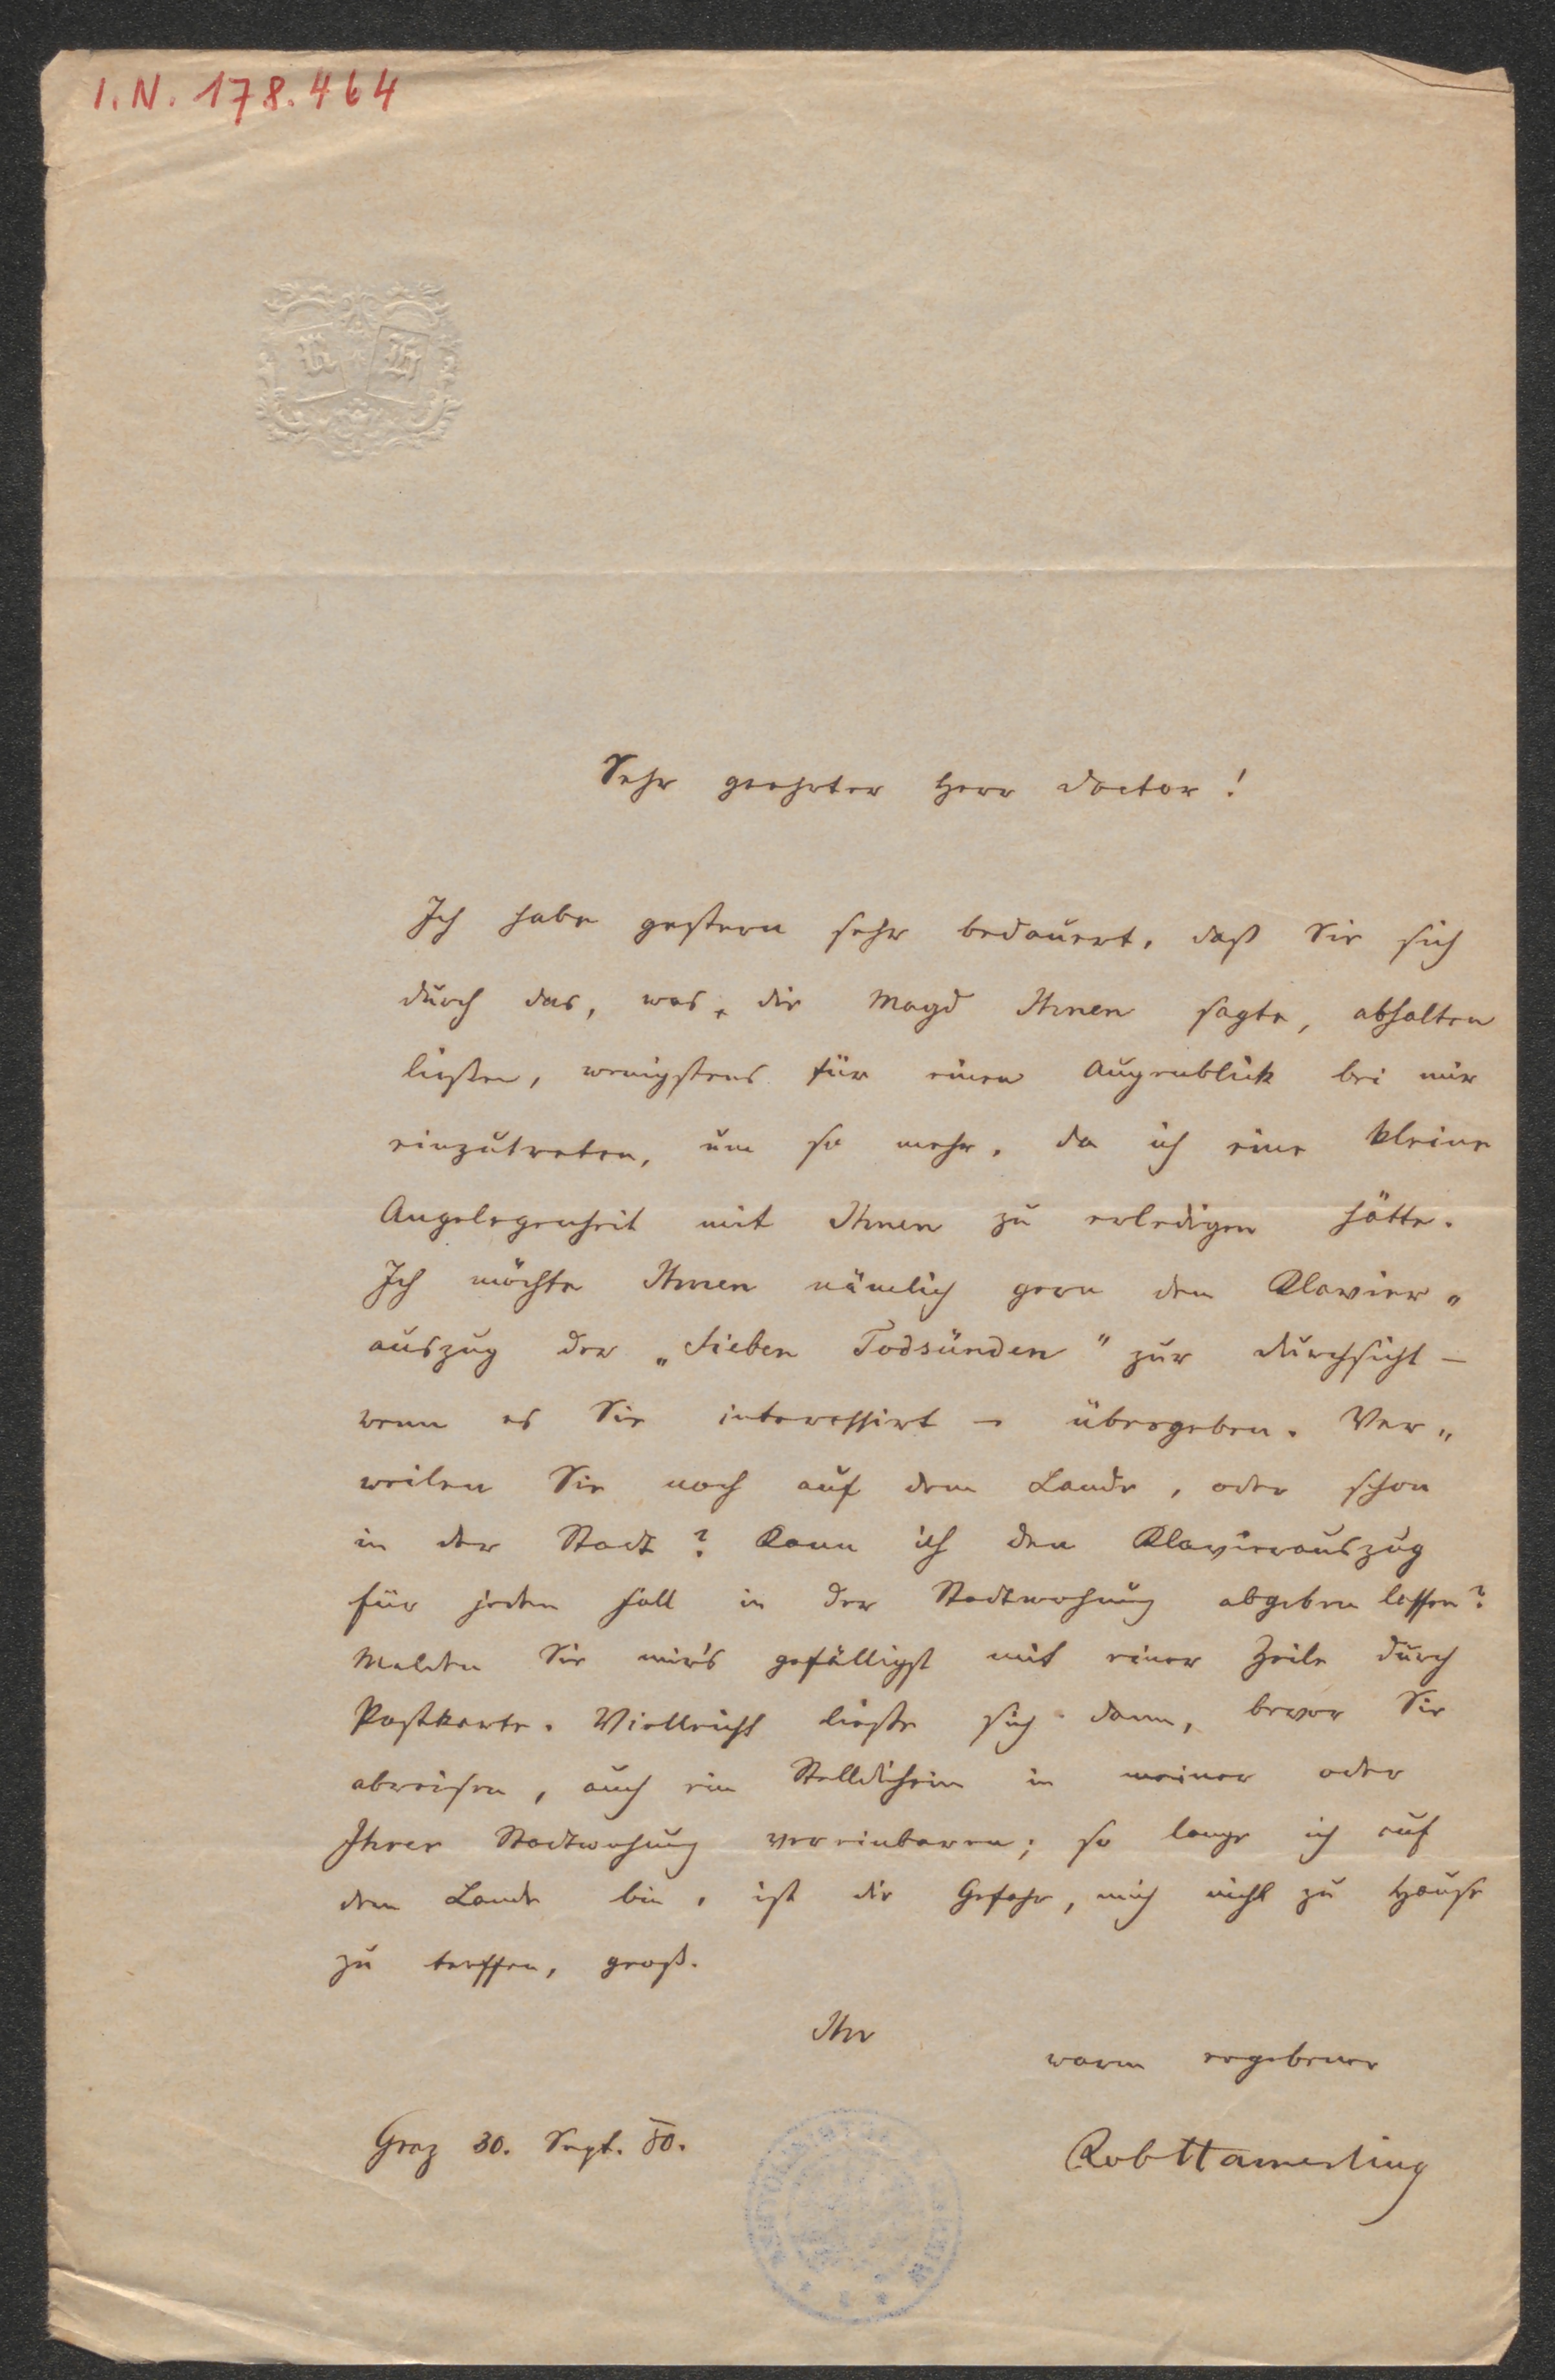 I.N. 178.464
R H
Sehr geehrter Herr Doctor!
Ich habe gestern sehr bedauert, daß Sie sich
durch das, was die Magd Ihnen sagte, abhalten
ließen, wenigstens für einen Augenblick bei mir
einzutreten, um so mehr, da ich eine kleine
Angelegenheit mit Ihnen zu erledigen hätte.
Ich möchte Ihnen nämlich gern den Klavier„
auszug der „Sieben Todsünden" zur Durchsicht –
wenn es Sie interessirt – übergeben. Ver„
weilen Sie noch auf dem Lande, oder schon
in der Stadt? Kann ich den Klavierauszug
für jeden Fall in der Stadtwohnung abgeben lassen?
Melden Sie mir's gefälligst mit einer Zeile durch
Postkarte. Vielleicht ließe sich dann, bevor Sie
abreisen, auch ein Stelldichein in meiner oder
Ihrer Stadtwohnung vereinbaren; so lange ich auf
dem Lande bin, ist die Gefahr, mich nicht zu Hause
zu treffen, groß.
Ihr
warm ergebener
Graz 30. Sept. 80.
Rob Hamerling